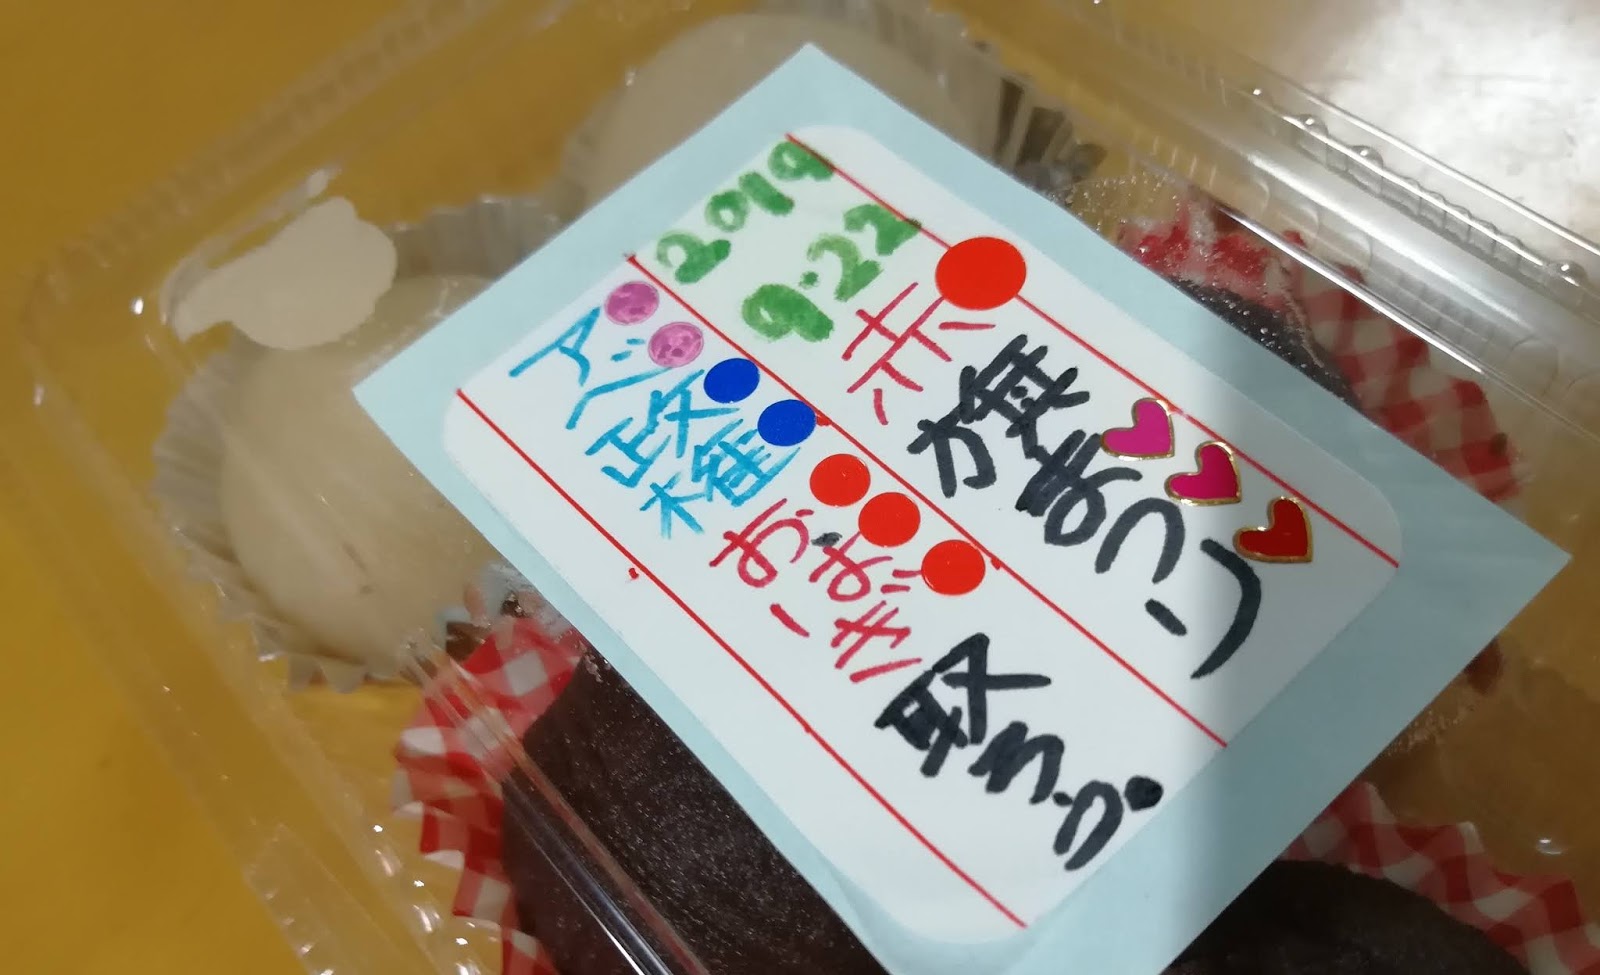 2019
9.22
赤旗まつり
アベ政権
取ろう。